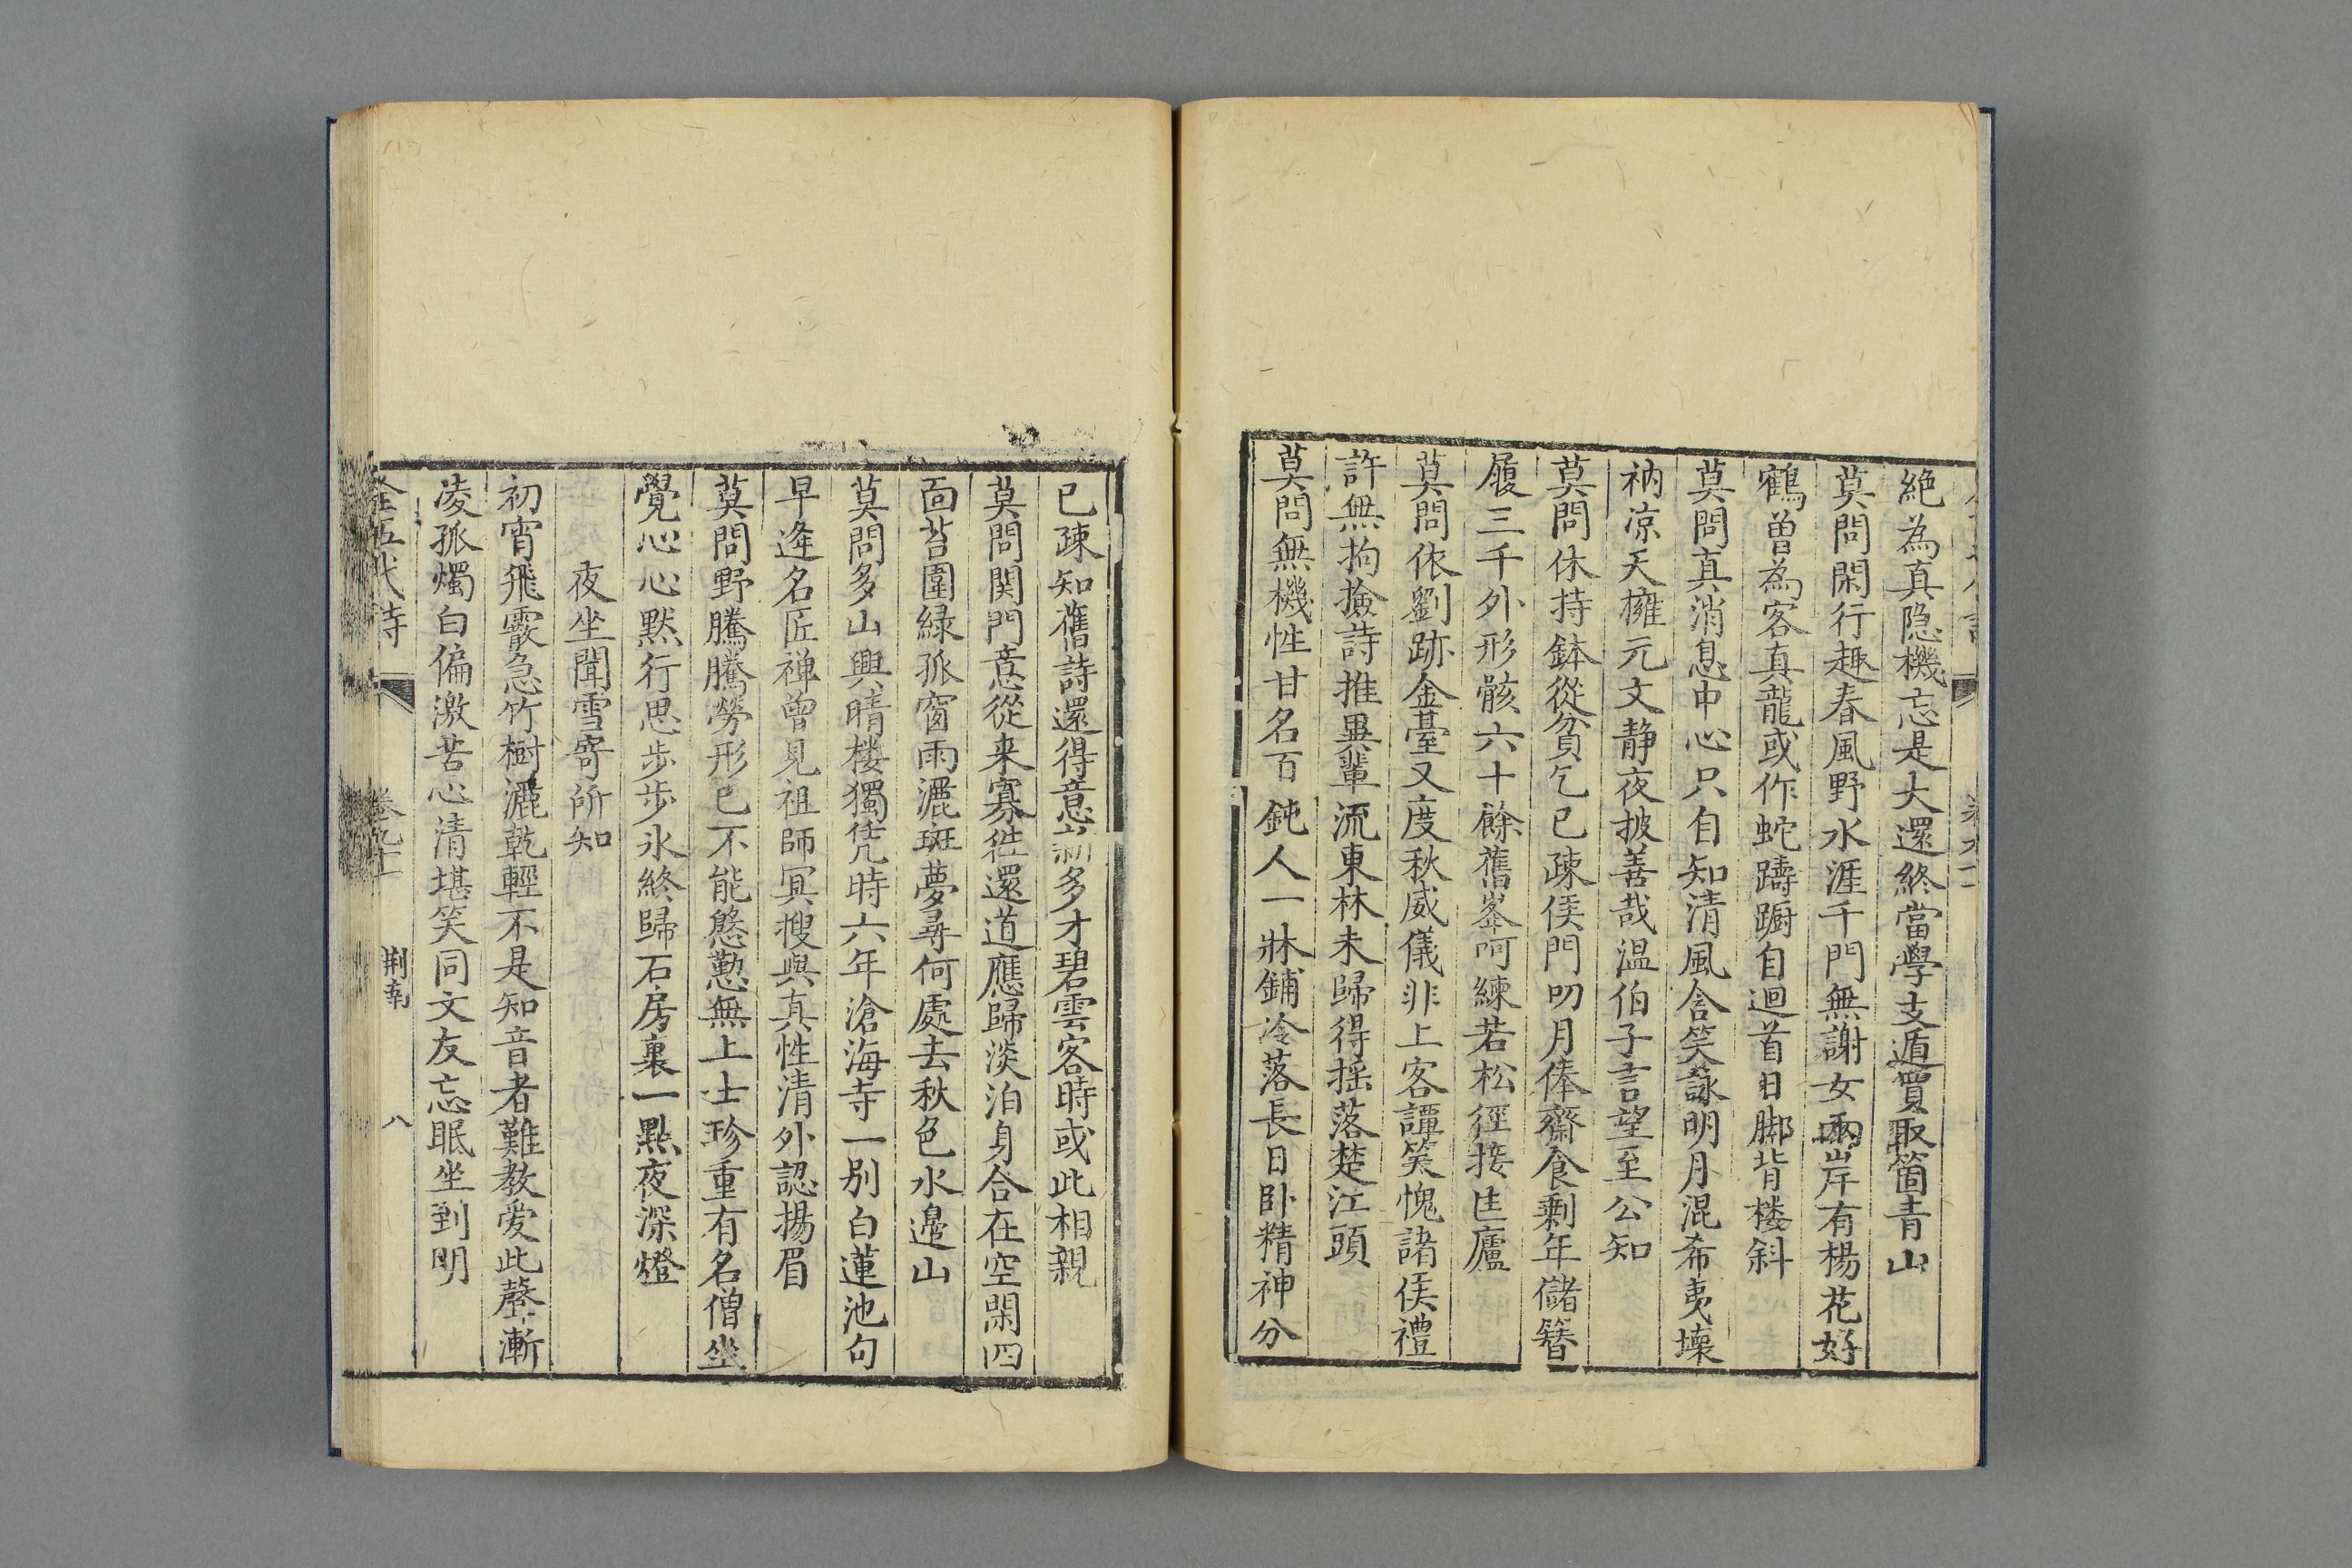 絶為真隐機忘是大還終當學支遁買取箇青山
莫問閑行趣春風野水涯千門無謝女兩岸有楊花好
鶴曽為客真龍或作蛇躊躕自迴首日脚背楼斜
莫問真消息中心只自知清風含笑詠明月混希夷壊
衲凉天擁元文静夜披善哉温伯子言望至公知
莫問休持鉢從貧乞已疎侯門叨月俸齋食剩年儲簪
履三千外形骸六十餘舊峯呵練若松徑接匡廬
莫問依劉跡金臺又度秋威儀非上客譚笑愧諸侯禮
許無拘撿詩推異輩流東林未歸得摇落楚江頭
莫問無機性甘名百鈍人一牀鋪冷落長日卧精神分
已疎知舊詩還得意新多才碧雲客時或此相親
莫問関門意從来寡徃還道應歸淡泊身合在空閑四
面苔圍緑孤窗雨灑斑夢尋何處去秋色水邉山
莫問多山興晴楼獨凭時六年滄海寺一别白蓮池句
早逢名匠禅曾見祖師冥搜與真性清外認揚眉
莫問野騰騰勞形已不能慇懃無上士珍重有名僧坐
覺心心默行思步步氷終歸石房裏一點夜深燈
夜坐聞雪寄所知
初宵飛霰急竹樹灑乾輕不是知音者難教爱此聲漸
凌孤燭白偏激苦心清堪笑同文友忘眠坐到明
全五代詩 卷九十 荆南 八